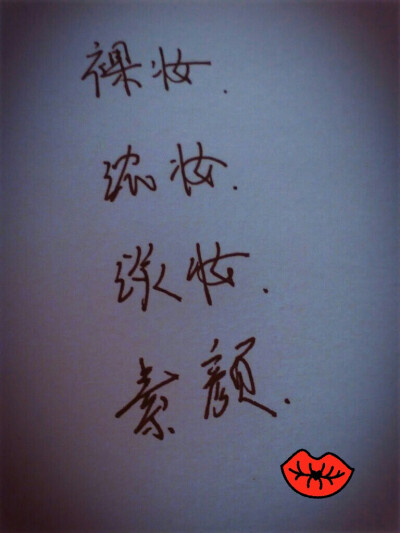 裸妆.
浓妆.
淡妆.
素颜.